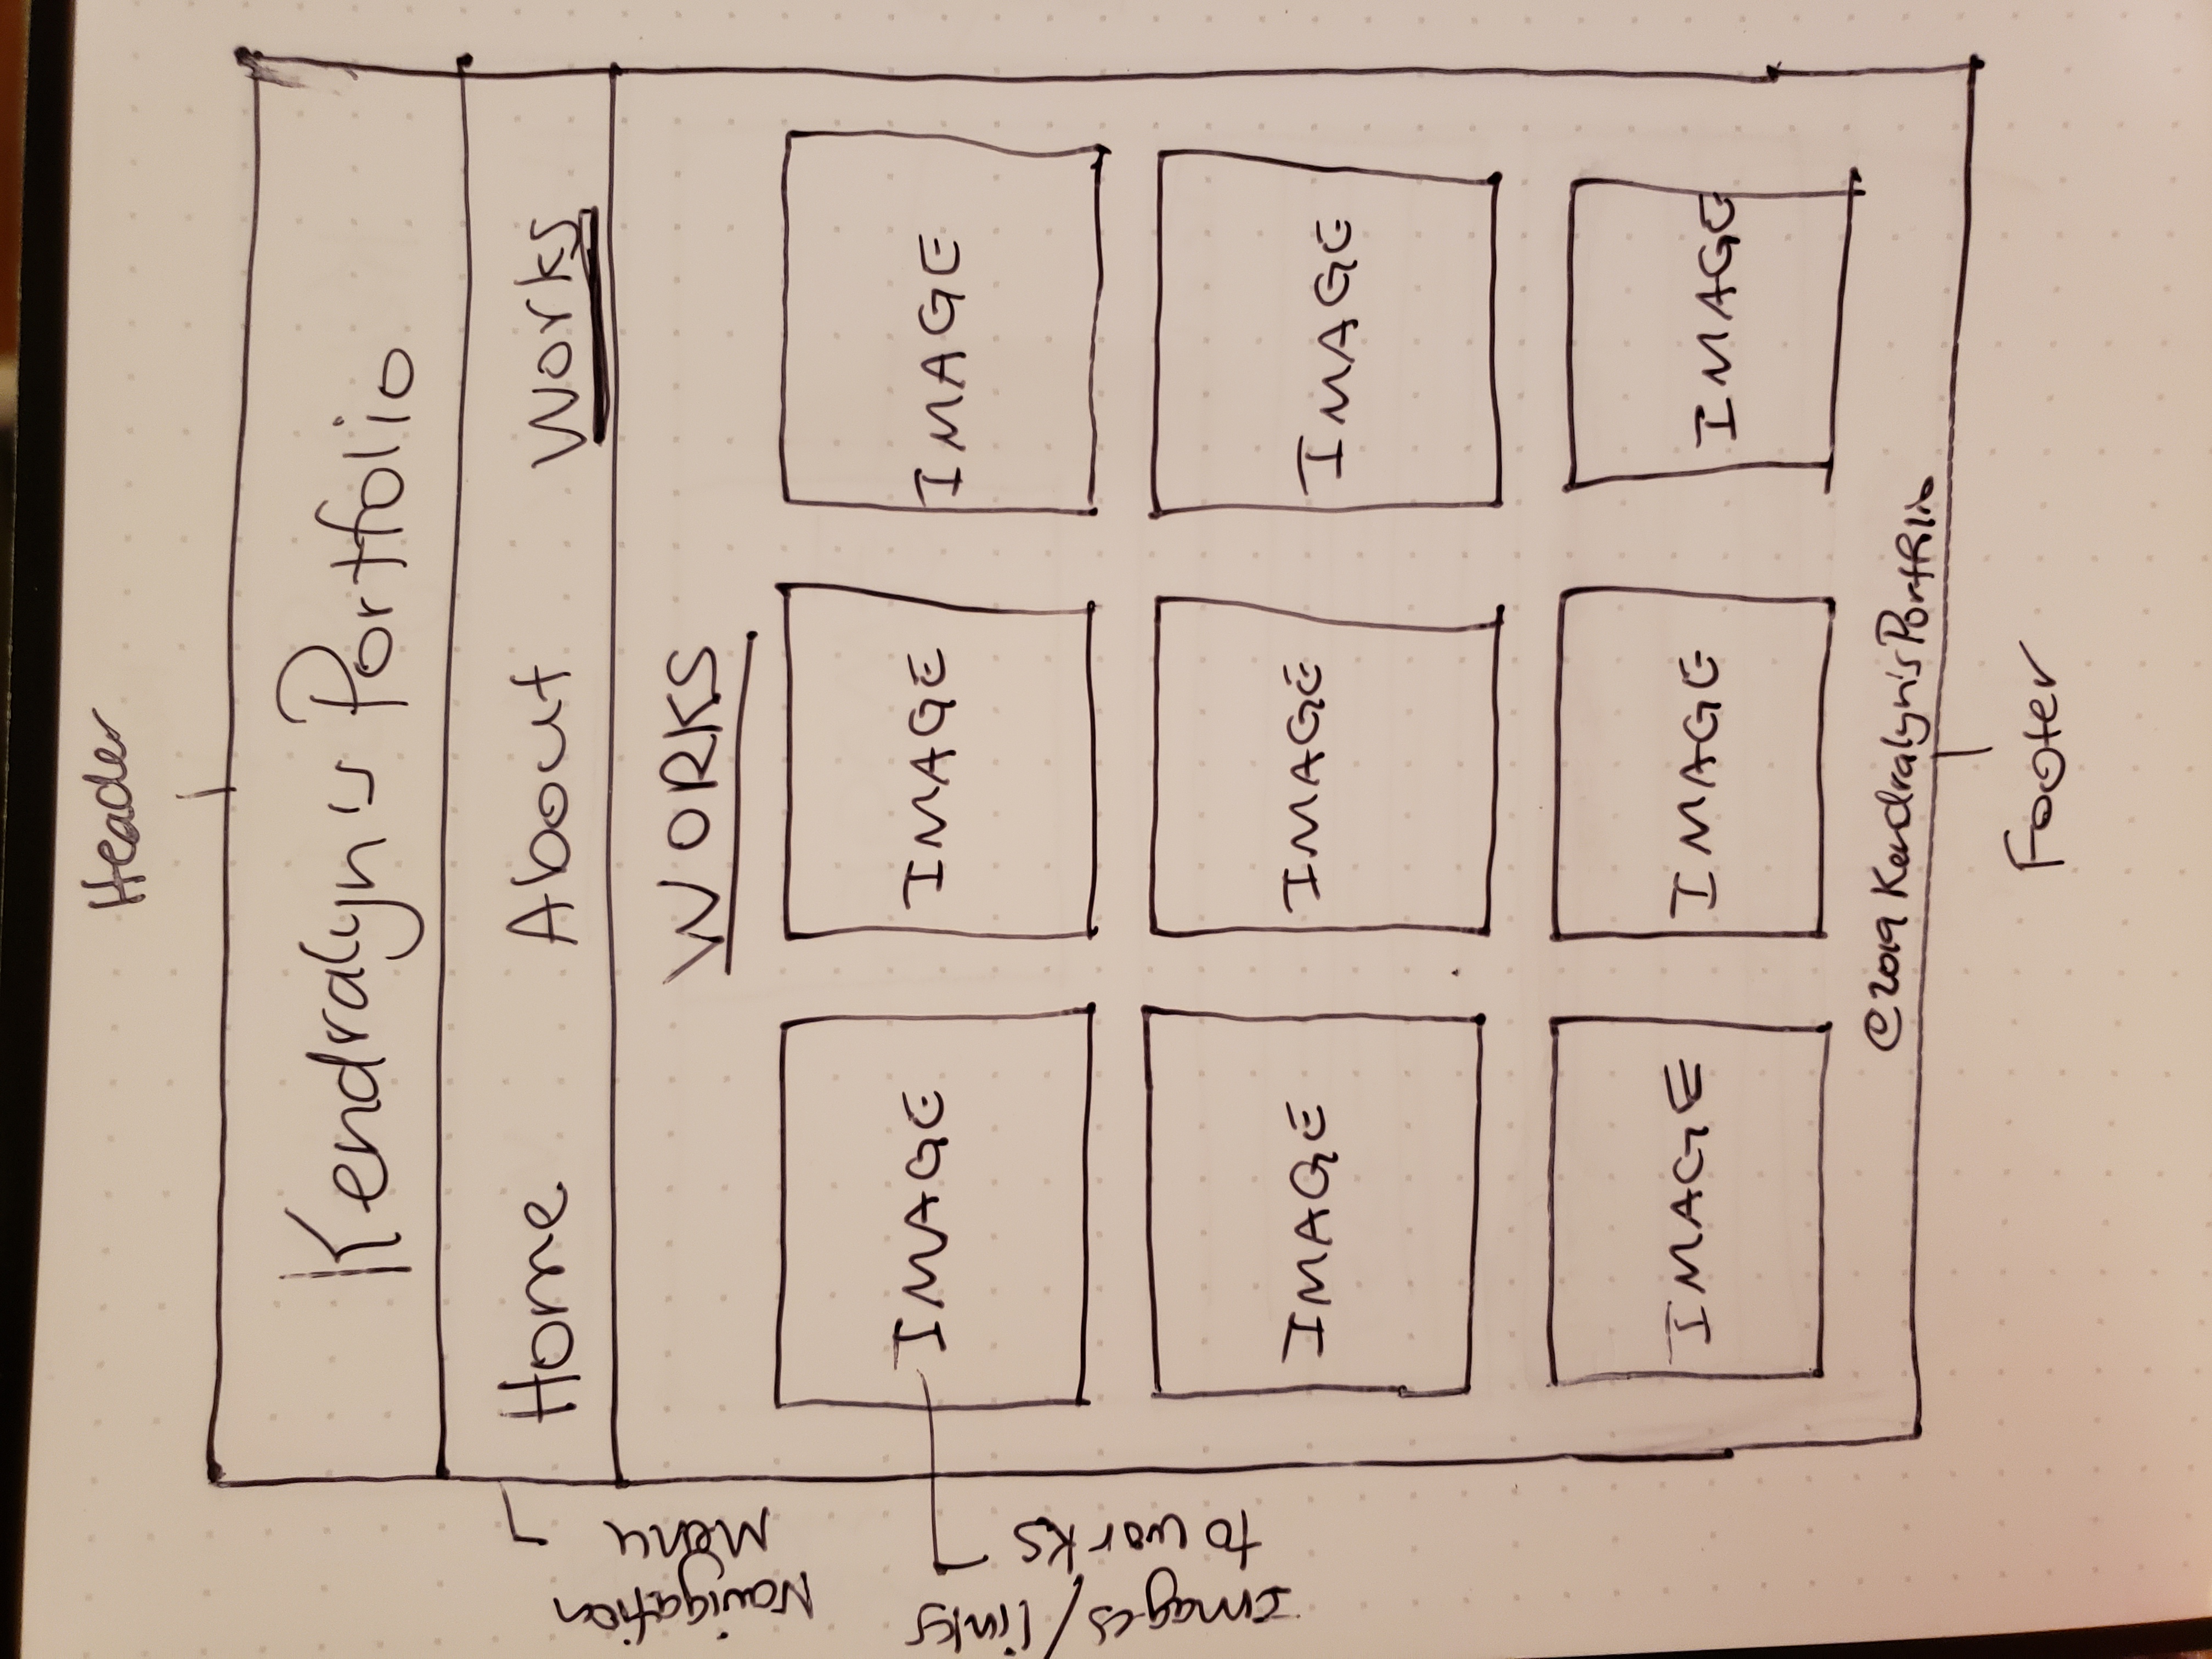 Header
Kendralyn's Portfolio
Home About Works
Navigation
Menu
WORKS
Images/links
to works
IMAGE IMAGE IMAGE
IMAGE IMAGE IMAGE
IMAGE IMAGE IMAGE
©2019 Kendralyn's Portfolio
Footer